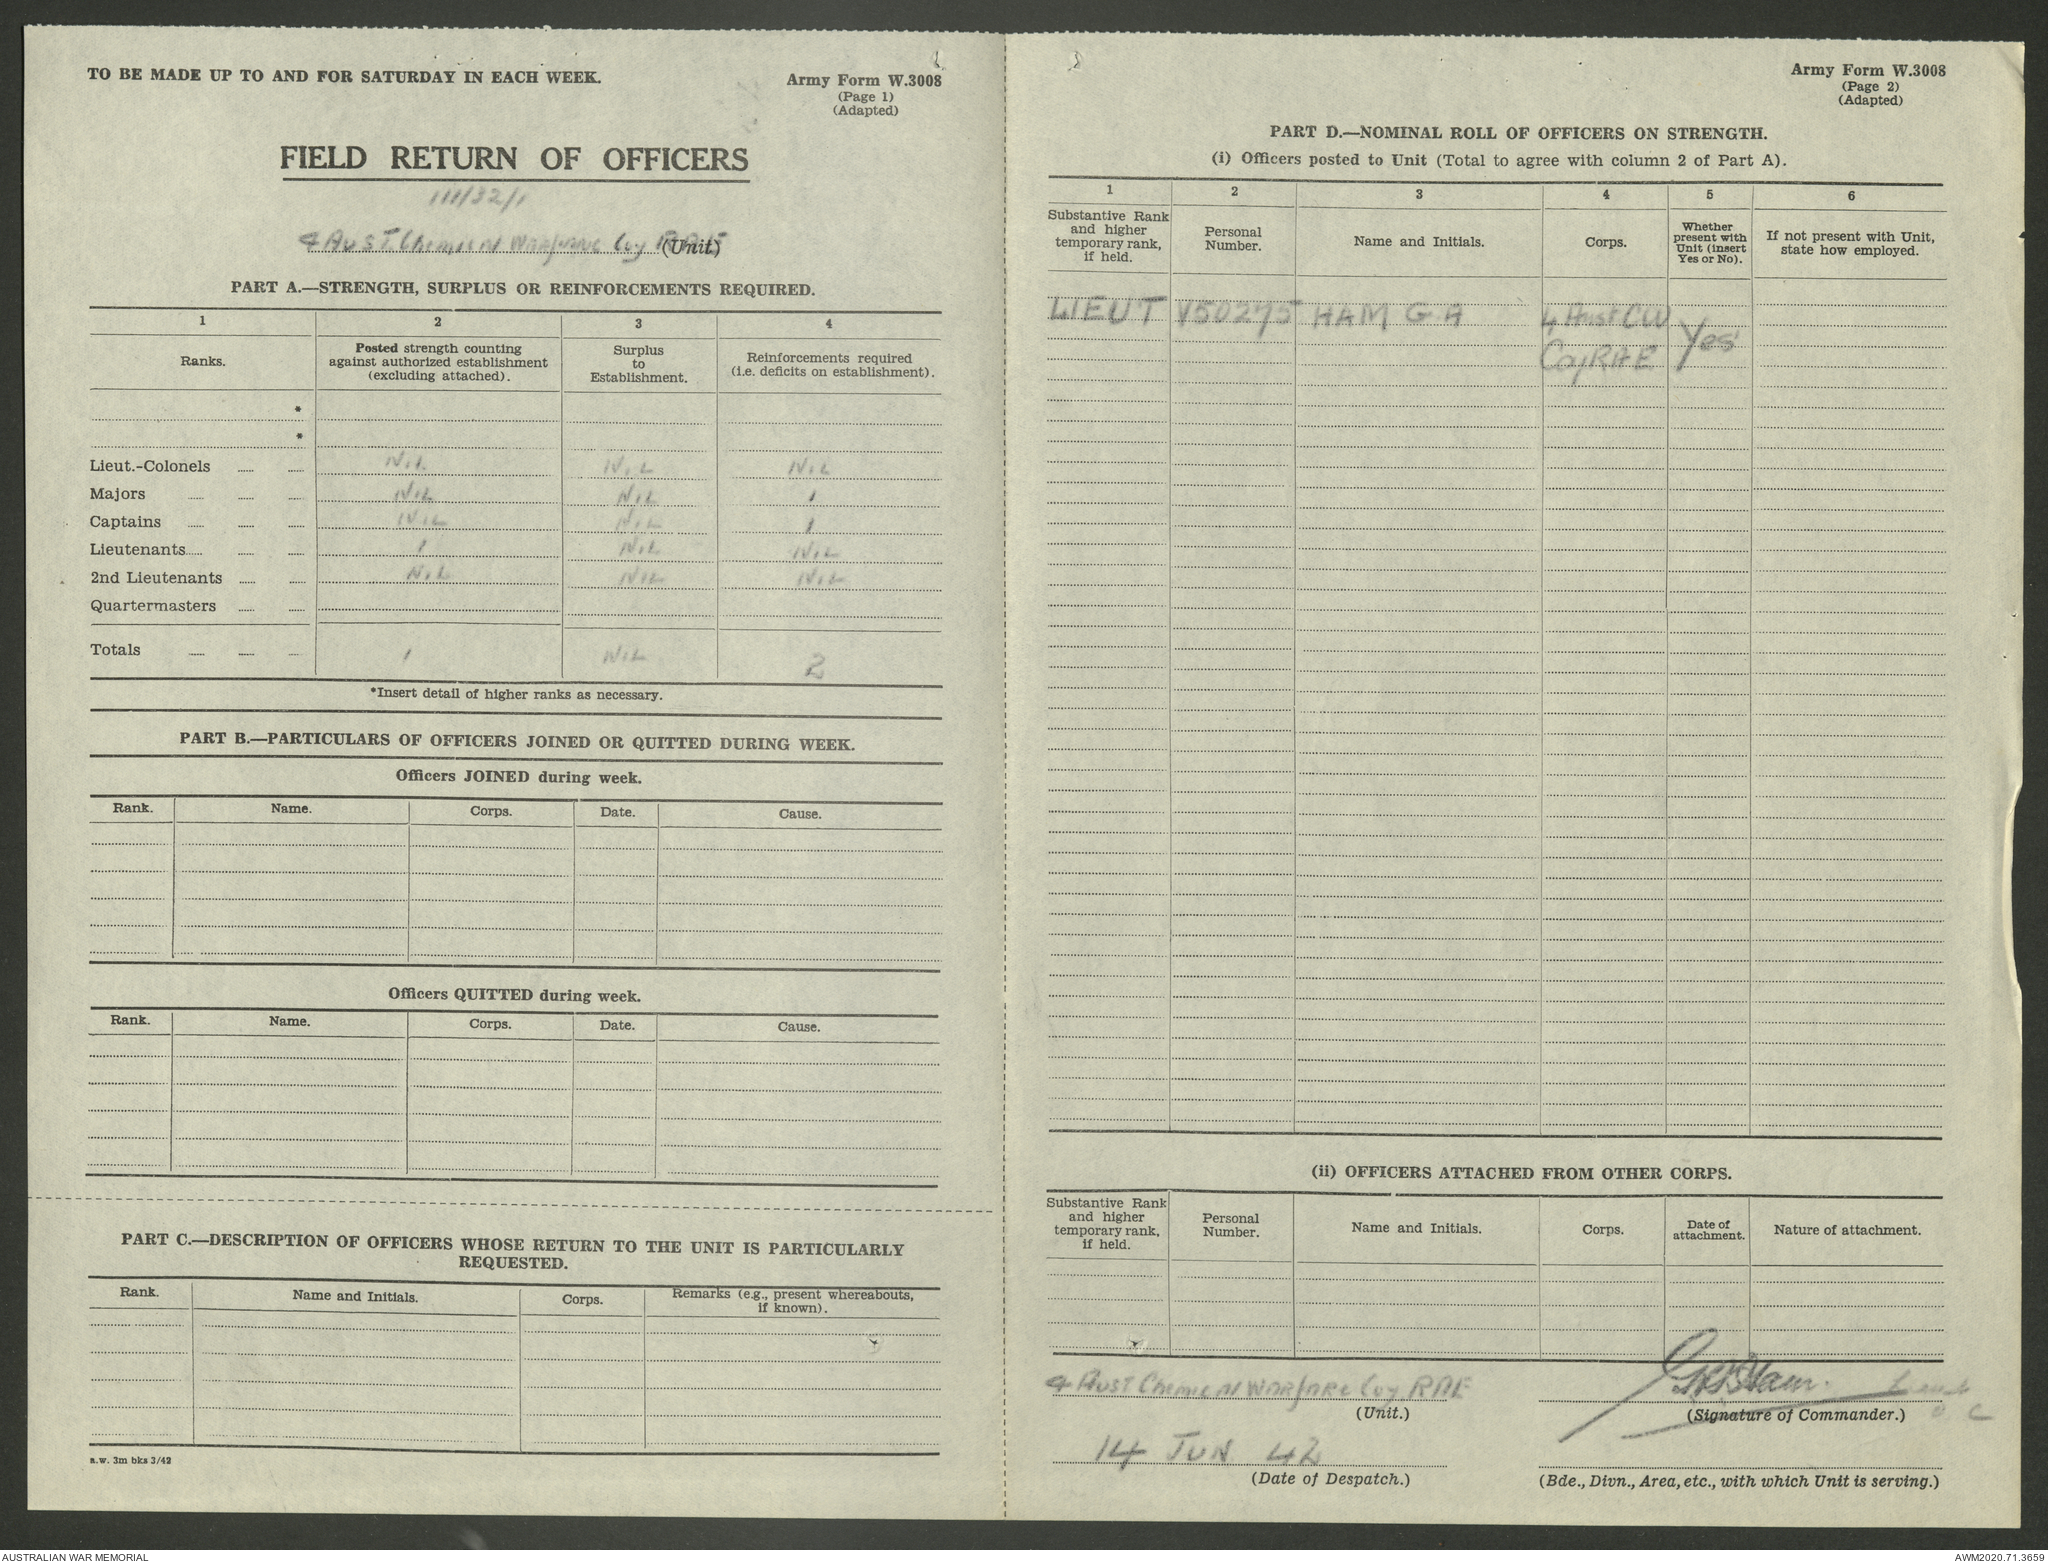 TO BE MADE UP TO AND FOR SATURDAY IN EACH WEEK.
Army Form W.3008
(Page 1)
(Adapted)
FIELD RETURN OF OFFICERS
111/32/1
4 AUST Chemical Warfare Coy RAE (Unit)
PART A.—STRENGTH, SURPLUS OR REINFORCEMENTS REQUIRED.
1 2 3 4
Ranks.
Posted strength counting against authorized establishment (excluding attached).
Surplus to Establishment.
Reinforcements required (i.e. deficits on establishment).
*
*
Lieut.-Colonels Nil Nil Nil
Majors Nil Nil 1
Captains Nil Nil 1
Lieutenants 1 Nil Nil
2nd Lieutenants Nil Nil Nil
Quartermasters
Totals 1 Nil 2
*Insert detail of higher ranks as necessary.
PART B.—PARTICULARS OF OFFICERS JOINED OR QUITTED DURING WEEK.
Officers JOINED during week.
Rank. Name. Corps. Date. Cause.
Officers QUITTED during week.
Rank. Name. Corps. Date. Cause.
PART C.—DESCRIPTION OF OFFICERS WHOSE RETURN TO THE UNIT IS PARTICULARLY
REQUESTED.
Rank. Name and Initials. Corps. Remarks (e.g., present whereabouts, if known).
a.w. 3m bks 3/42
Army Form W.3008
(Page 2)
(Adapted)
PART D.—NOMINAL ROLL OF OFFICERS ON STRENGTH.
(i) Officers posted to Unit (Total to agree with column 2 of Part A).
1 2 3 4 5 6
Substantive Rank and higher temporary rank, if held.
Personal Number.
Name and Initials.
Corps.
Whether present with Unit (insert Yes or No).
If not present with Unit, state how employed.
LIEUT V50275 HAM G A 4 Aust CW
Coy RAE Yes
(ii) OFFICERS ATTACHED FROM OTHER CORPS.
Substantive Rank and higher temporary rank, if held.
Personal Number.
Name and Initials.
Corps.
Date of attachment.
Nature of attachment.
4 AUST Chemical Warfare Coy RAE
(Unit.)
Ham. Lieut
O C
(Signature of Commander.)
14 JUN 42
(Date of Despatch.)
(Bde., Divn., Area, etc., with which Unit is serving.)
AUSTRALIAN WAR MEMORIAL
AWM2020.71.3659